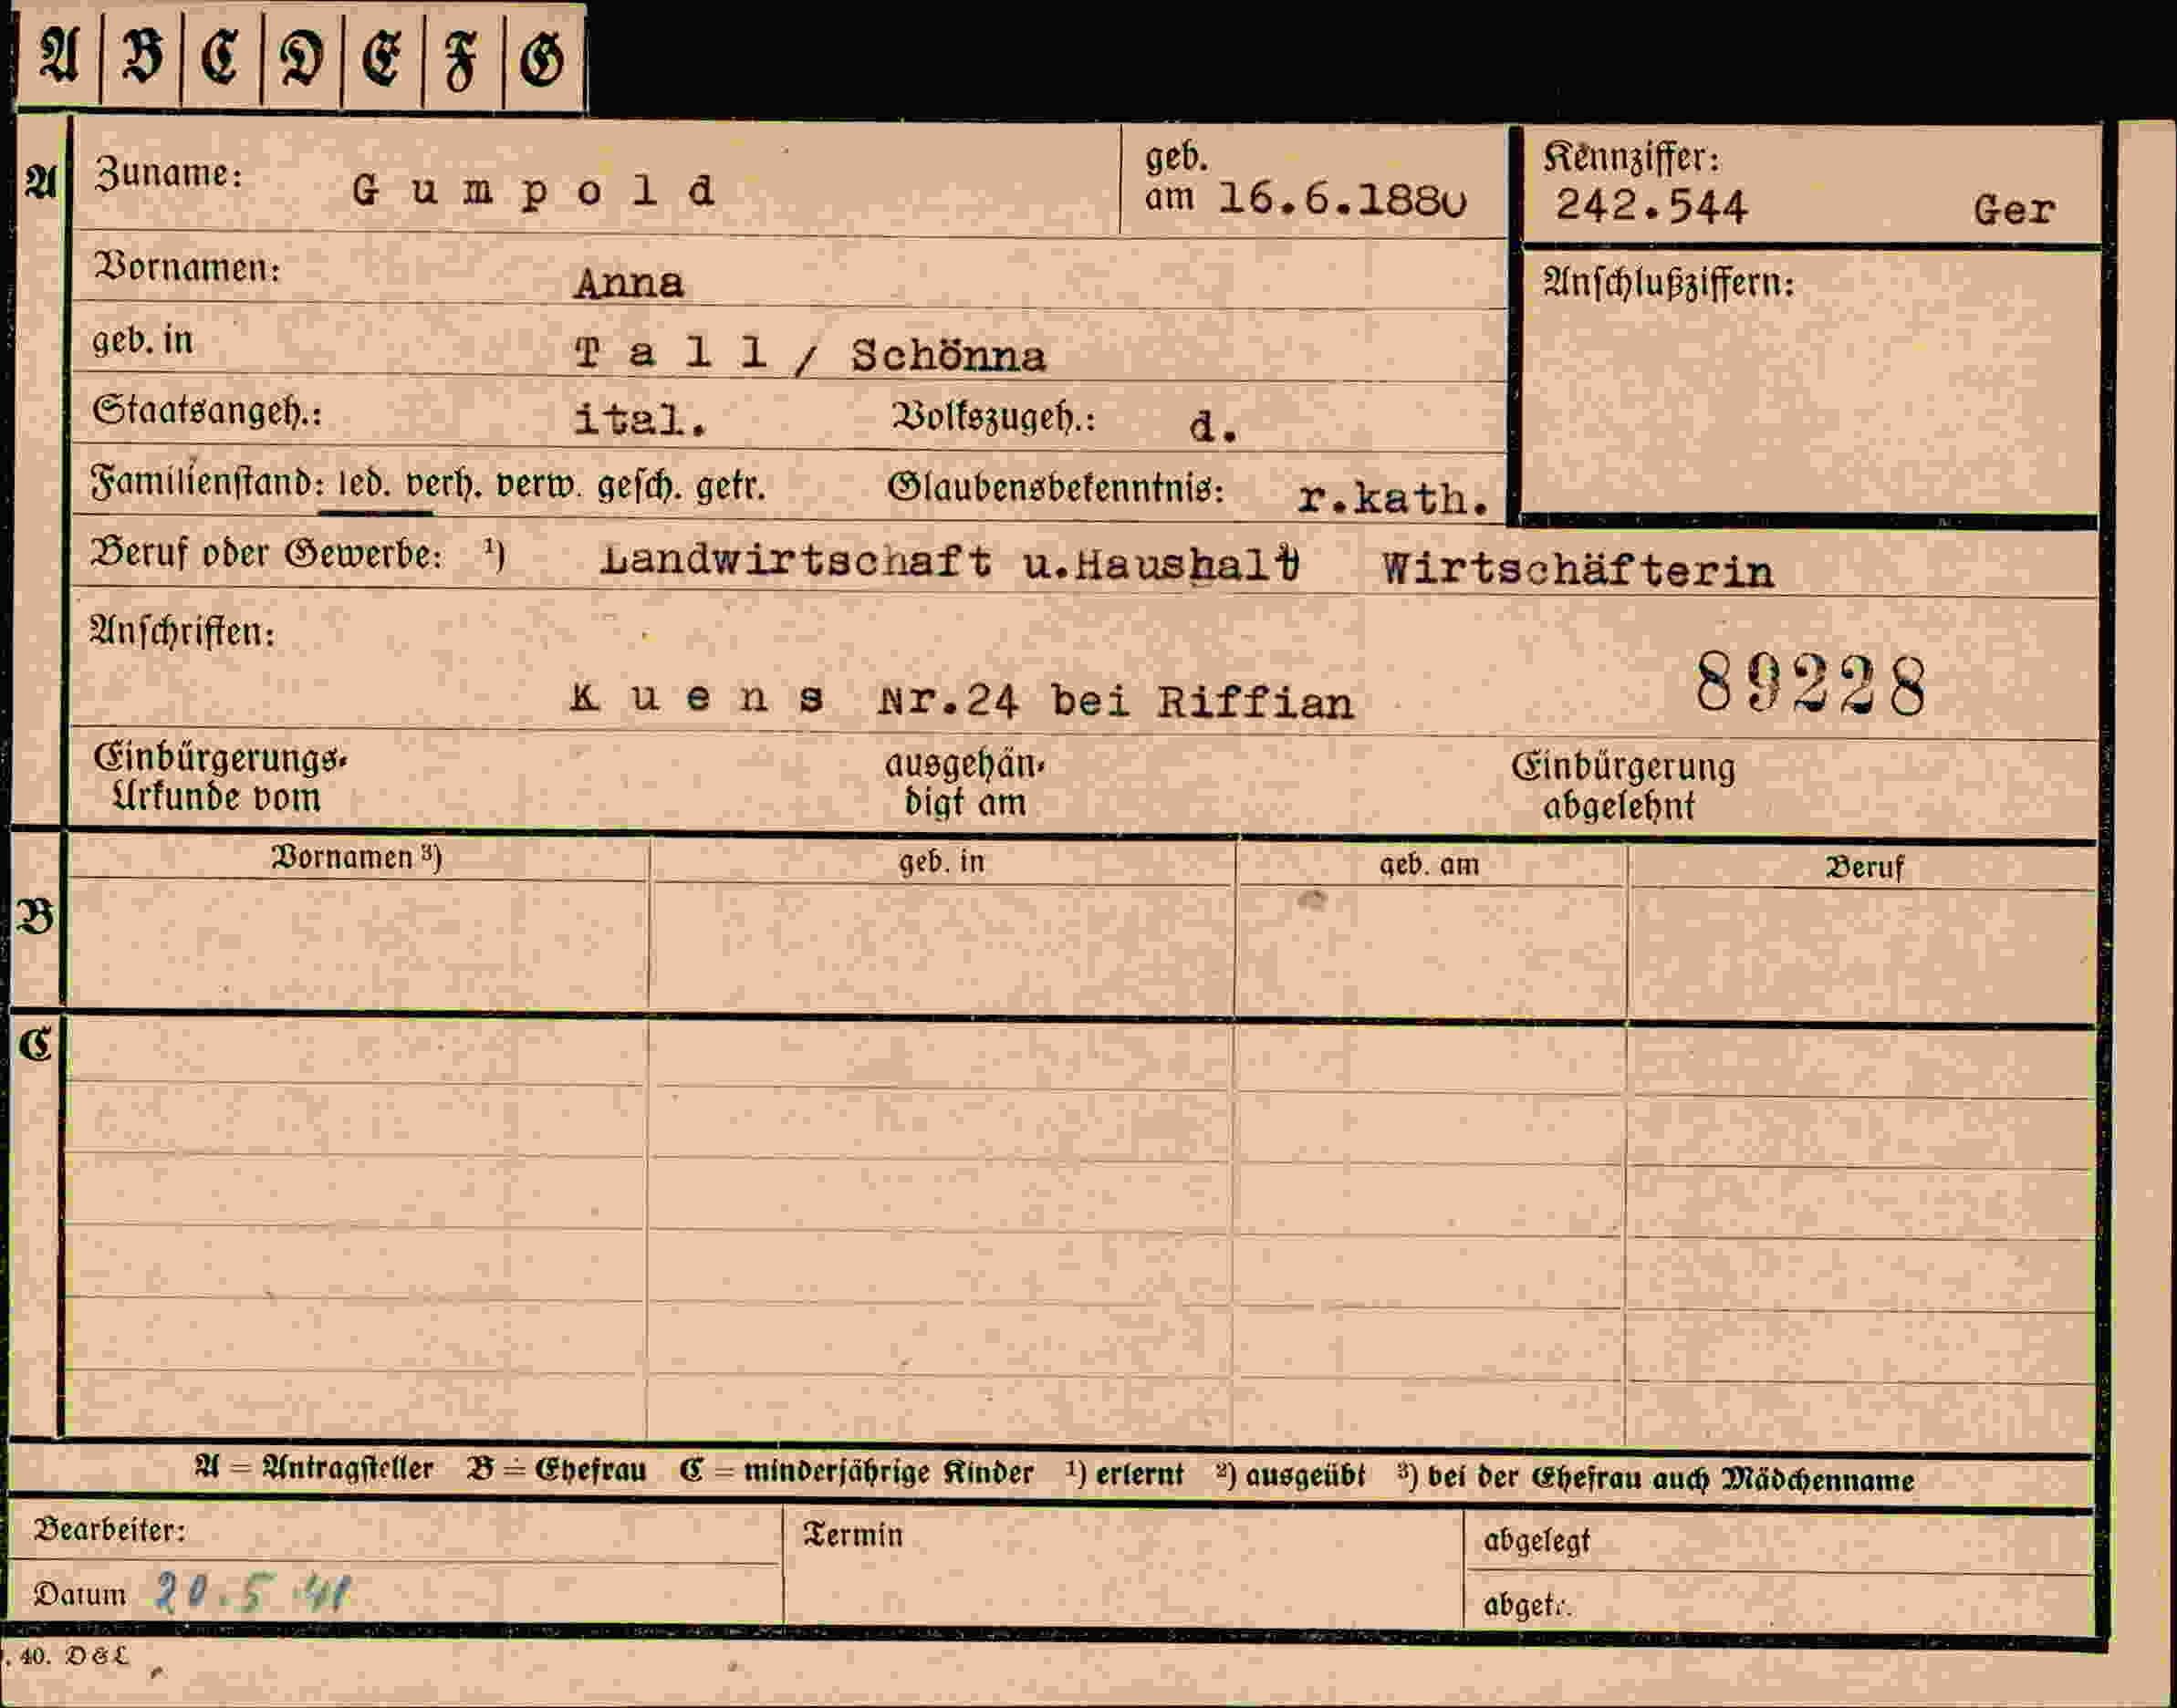 A B C D E F G
A Zuname: Gumpold geb. am 16.6.1880 Kennziffer: 242.544 Ger
Vornamen: Anna Anschlußziffern:
geb. in Tall / Schönna
Staatsangeh.: ital. Volkszugeh.: d.
Familienstand: led. verh. verw. gesch. getr. Glaubensbekenntnis: r.kath.
Beruf oder Gewerbe: ¹) Landwirtschaft u.Haushalt Wirtschäfterin
Anschriften:
Kuens Nr.24 bei Riffian 89228
Einbürgerungs- ausgehän- Einbürgerung
Urkunde vom digt am abgelehnt
Vornamen ³) geb. in geb. am Beruf
B
C
A = Antragsteller B = Ehefrau C = minderjährige Kinder ¹) erlernt ²) ausgeübt ³) bei der Ehefrau auch Mädchenname
Bearbeiter: Termin abgelegt
Datum 20.5.41 abgetr.
. 40. D & L